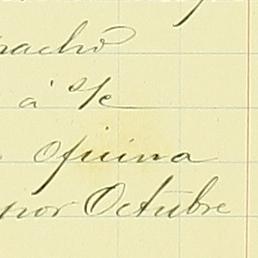 pachó
á s/c
oficina
por Octubre